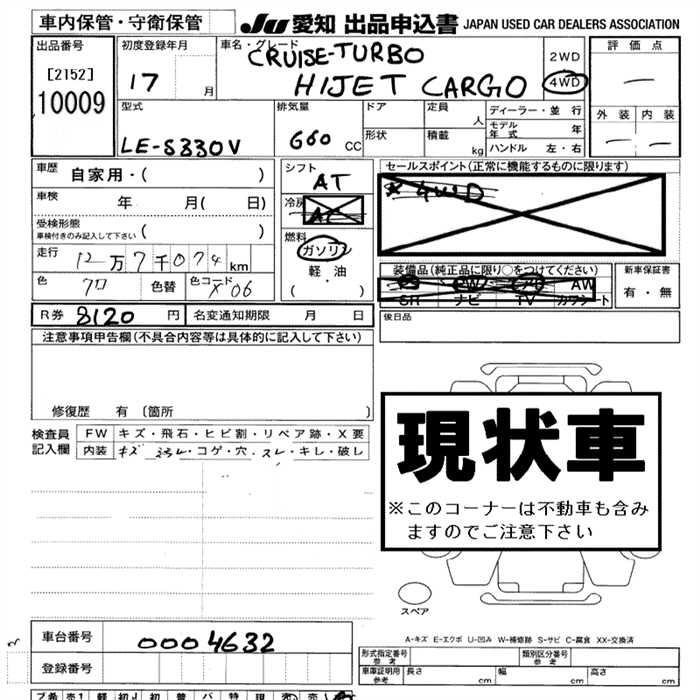 車内保管・守衛保管
JU 愛知 出品申込書 JAPAN USED CAR DEALERS ASSOCIATION
出品番号
[2152]
10009
初度登録年月
17 月
車名・グレード
CRUISE-TURBO
HIJET CARGO
2WD
4WD
評価点
外装 内装
型式
LE-S330V
排気量
660 CC
ドア
形状
定員 人
積載 kg
ディーラー・並行
モデル年式 年
ハンドル 左・右
車歴 自家用・( )
車検 年 月( 日)
受検形態
車検付きのみ記入して下さい ( )
走行 12万7千074km
色 クロ 色替 色コード X06
シフト
AT
冷房
AC
燃料
ガソリン
軽・油
( ・ )
セールスポイント(正常に機能するものに限ります)
4WD
装備品(純正品に限り○をつけてください)
PW AW
SR ナビ TV カワシート
新車保証書
有・無
R券 8120 円 名変通知期限 月 日
後日品
注意事項申告欄(不具合内容等は具体的に記入して下さい)
修復歴 有 〔箇所 〕
検査員記入欄
FW キズ・飛石・ヒビ割・リペア跡・X要
内装 キズ ・コゲ・穴・スレ・キレ・破し
現状車
※このコーナーは不動車も含み
ますのでご注意下さい
スペア
A-キズ E-エクボ U-凹み W-補修跡 S-サビ C-腐食 XX-交換済
車台番号 0004632
登録番号
形式指定番号 参考
類別区分番号 参考
車庫証明用 参考 長さ cm 幅 cm 高さ cm